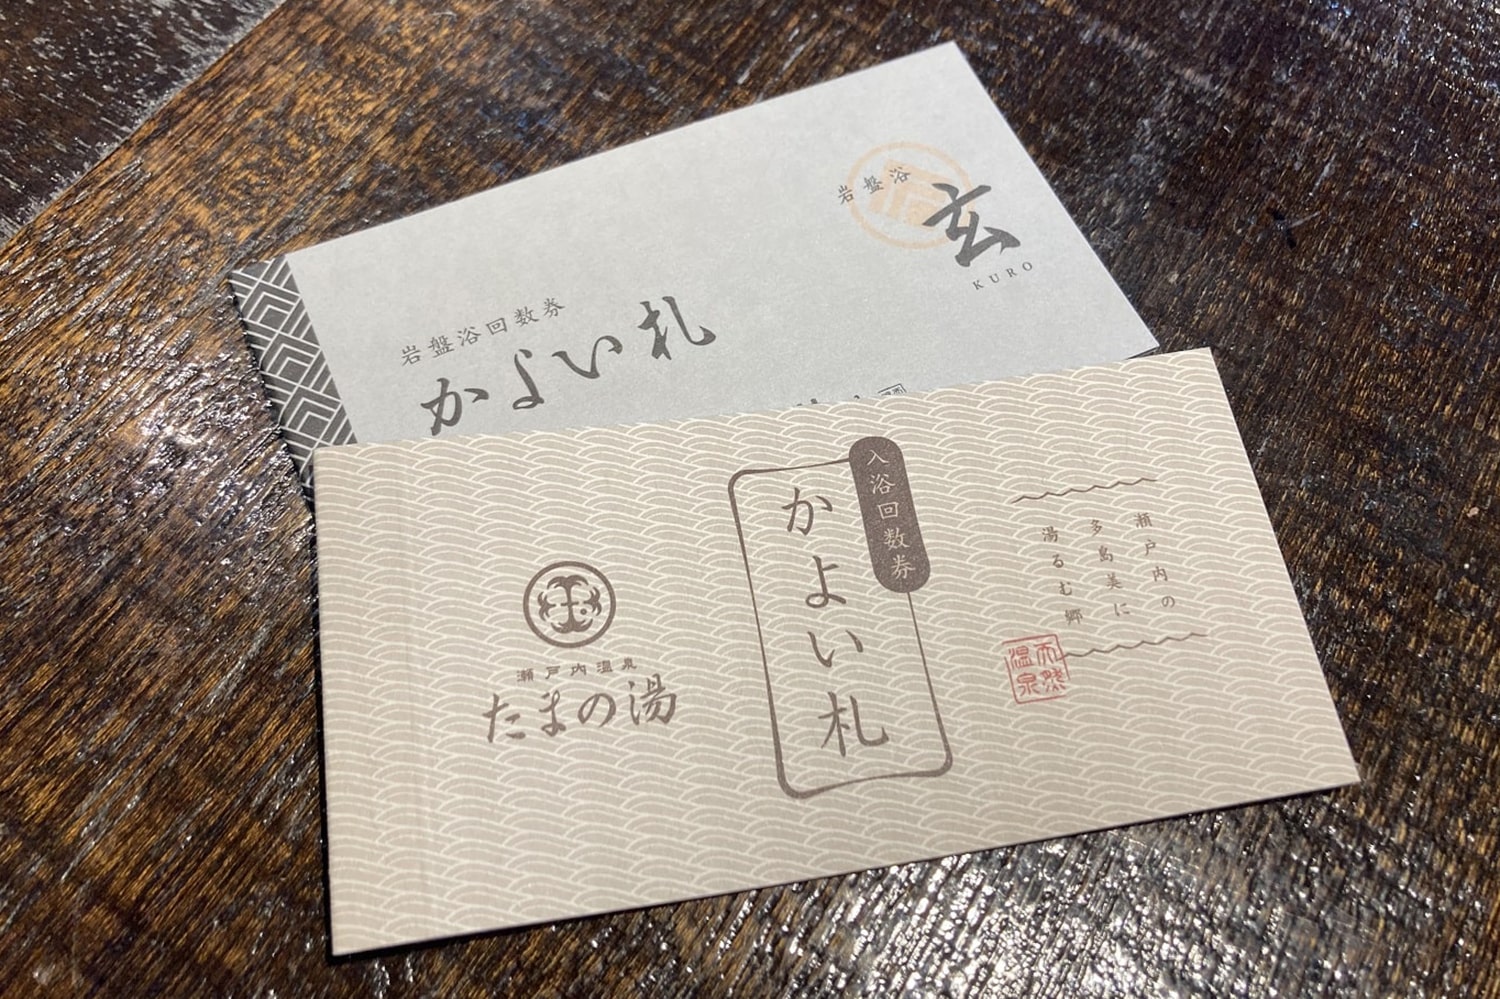 岩盤浴
玄
KURO
岩盤浴回数券
かよい札
入浴回数券
かよい札
瀬戸内の
多島美に
湯るむ郷
天然
温泉
瀬戸内温泉
たまの湯